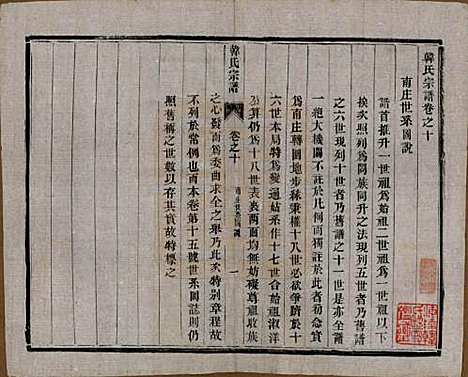 韓氏宗譜卷之十
南庄世系圖說
譜首推升一世祖爲始祖二世祖爲一世以下
挨次照列爲闔族同升之法現列五世者乃舊譜
之六世現列十世者乃舊譜之十一世是亦全譜
一絕大機關不註於几何而獨註於此者初念實
爲南庄轉圜地步緣秉權十八世必欲爭儕於十
六世本局特爲變通姑系作十七世合始祖淑洋
韓氏宗譜
卷之十
南庄世系圖說
一
公算仍爲十八世表裏兩面均無妨礙是尊祖敬族
之心發而爲委曲求全之舉乃此次特別章程故
不列於常例而本卷第十五號世系圖誌則仍
照舊稱之世數以存其實故特標之